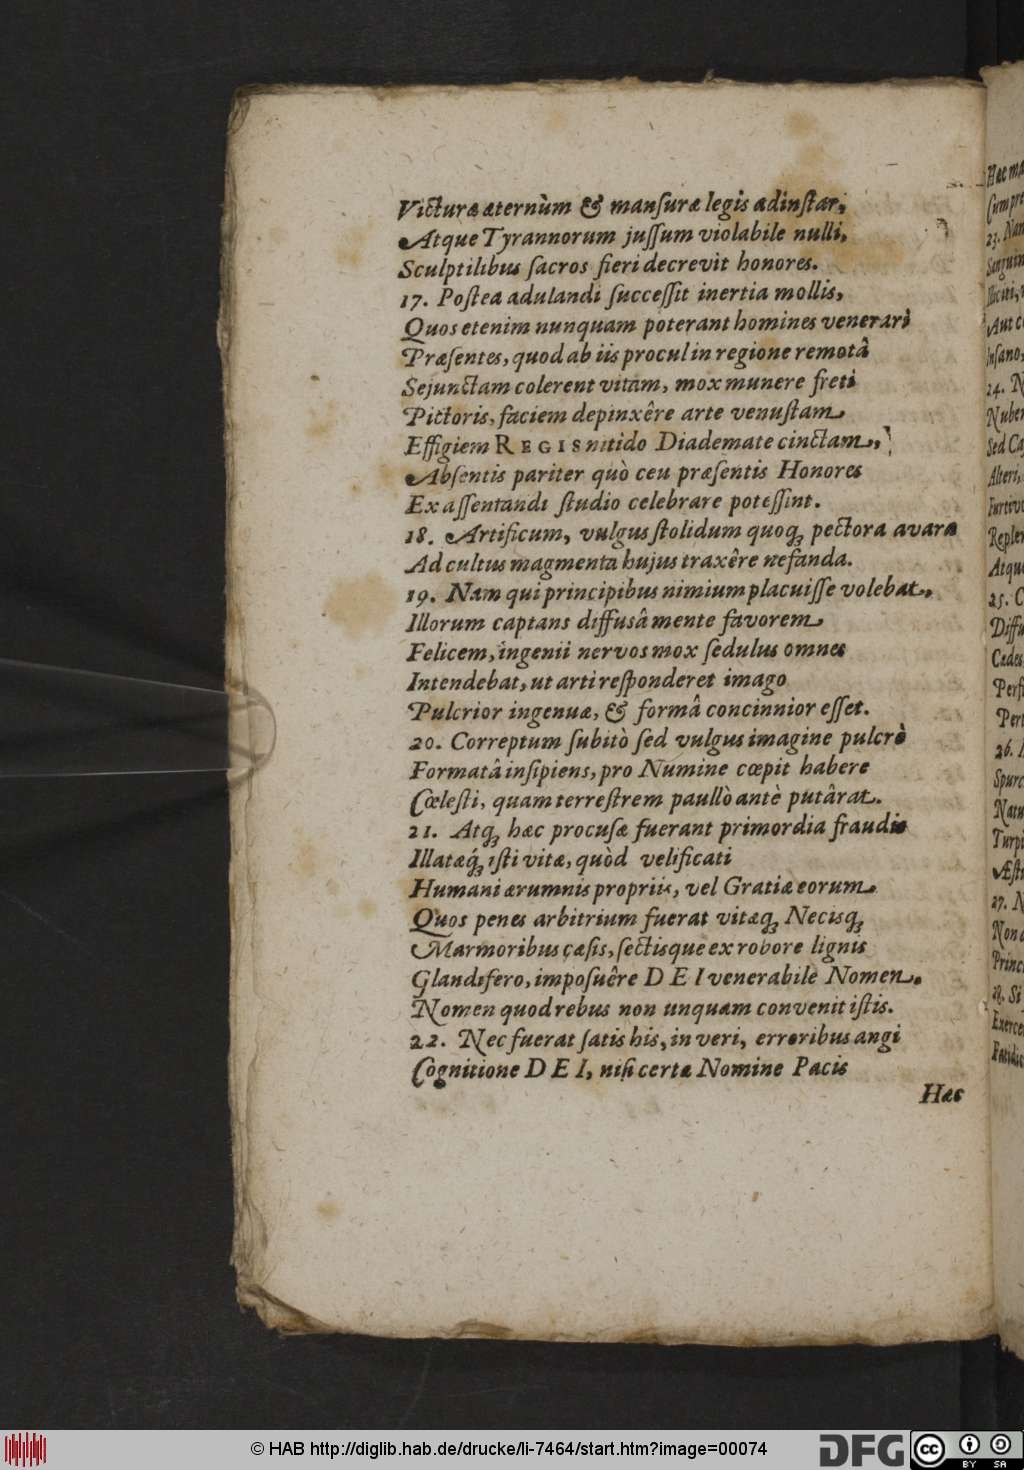 Victuræ æternùm & manſuræ legis adinſtar,
Atque Tyrannorum juſſum violabile nulli,
Sculptilibus ſacros fieri decrevit honores.
17. Poſtea adulandi ſucceſſit inertia mollis,
Quos etenim nunquam poterant homines venerari
Præſentes, quod ab iis procul in regione remotâ
Sejunctam colerent vitam, mox munere freti
Pictoris, faciem depinxêre arte venuſtam
Effigiem REGIS nitido Diademate cinctam,
Abſentis pariter quò ceu præſentis Honores
Ex aſſentandi ſtudio celebrare poteſſint.
18. Artificum, vulgus ſtolidum quoqꝫ pectora avara
Ad cultus magmenta hujus traxêre nefanda.
19. Nam qui principibus nimium placuiſſe volebat,
Illorum captans diffusâ mente favorem
Felicem, ingenii nervos mox ſedulus omnes
Intendebat, ut arti reſponderet imago
Pulcrior ingenuæ, & formâ concinnior eſſet.
20. Correptum ſubitò ſed vulgus imagine pulcrè
Formatâ inſipiens, pro Numine cœpit habere
Cœleſti, quam terreſtrem paullò antè putârat.
21. Atqꝫ hæc procuſæ fuerant primordia fraudis
Illatæq́ꝫ iſti vitæ, quòd velificati
Humani ærumnis propriis, vel Gratiæ eorum
Quos penes arbitrium fuerat vitæqꝫ Necisqꝫ
Marmoribus çæſis, ſectisque ex robore lignis
Glandifero, impoſuêre DEI venerabile Nomen.
Nomen quod rebus non unquam convenit iſtis.
22. Nec fuerat ſatis his, in veri, erroribus angi
Cognitione DEI, niſi certa Nomine Pacis
Hæc
© HAB http://diglib.hab.de/drucke/li-7464/start.htm?image=00074
DFG
cc
BY SA